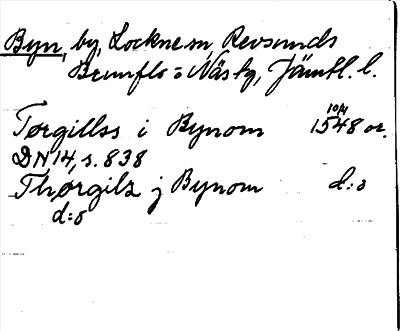 Byn, by, Lockne sn, Revsunds
Brunflo o Näs tg, Jämtl. l.
10/4
Tørgillss i Bynom 1548 or.
DN 14, s. 838
Thørgilz j Bynom d:o
d:o